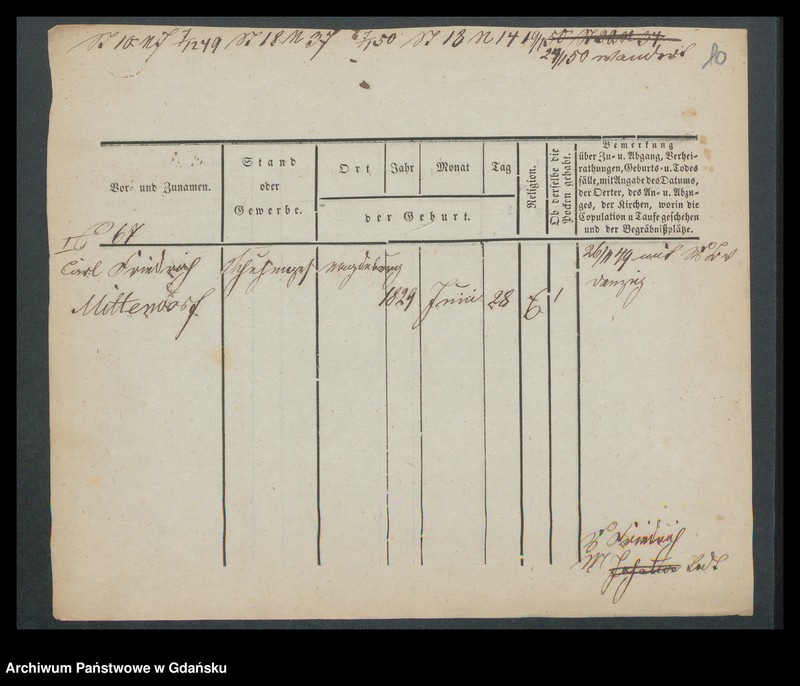 St 10 N 7 7/12 49 St 18 N 37 6/7 50 St 13 N 14 19/1 50
29/1 50 wandert
10
Vor- und Zunamen.
Stand
oder
Gewerbe.
Ort
Jahr
Monat
Tag
der Geburt.
Religion.
Ob derselbe die
Pocken gehabt.
Bemerkung
über Zu- u. Abgang, Verhei-
rathungen, Geburts- u. Todes
fälle, mit Angabe des Datums,
der Oerter, des An- u. Abzu-
ges, der Kirchen, worin die
Copulation u Taufe geschehen
und der Begräbnißplätze.
67
Carl Friedrich
Mittendorf
Magdeburg
1829
Juni
28
E
1
26/11 49 mit
Danzig
Friedrich
Archiwum Państwowe w Gdańsku